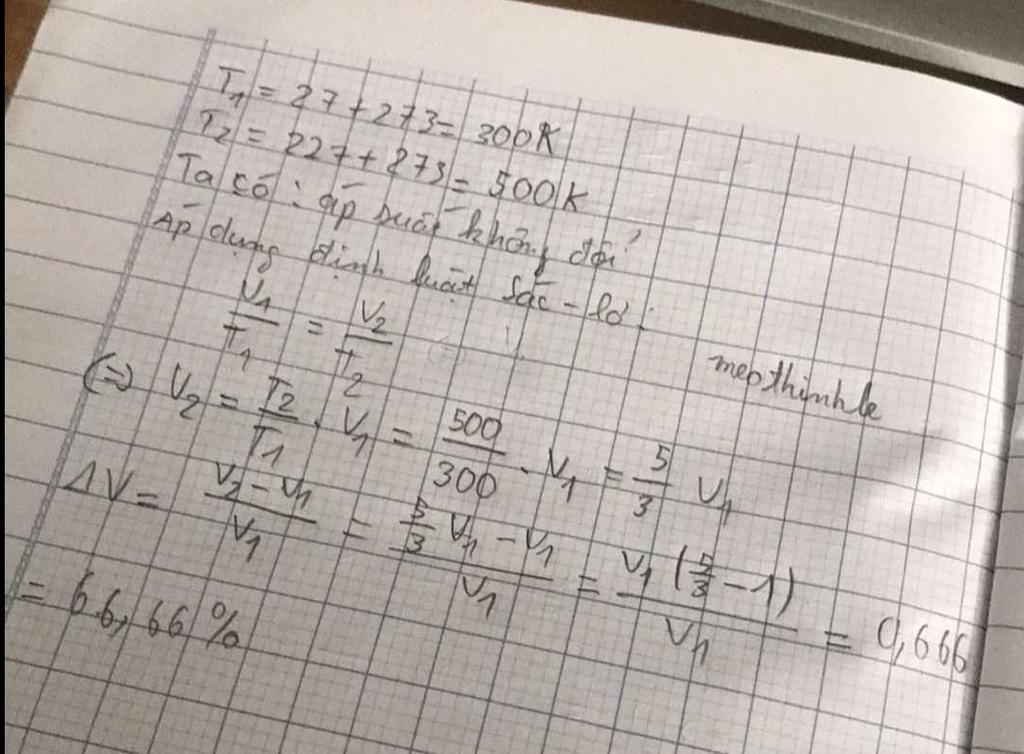 T₁ = 27 + 273 = 300K
T₂ = 227 + 273 = 500K
Ta có : áp suất không đổi
Áp dụng định luật Sác - lơ :
V₁/T₁ = V₂/T₂
mepthimhle
(=) V₂ = T₂/T₁ . V₁ = 500/300 . V₁ = 5/3 V₁
ΔV = (V₂ - V₁)/V₁ = (5/3 V₁ - V₁)/V₁ = V₁ (5/3 - 1)/V₁ = 0,666
= 66,66 %